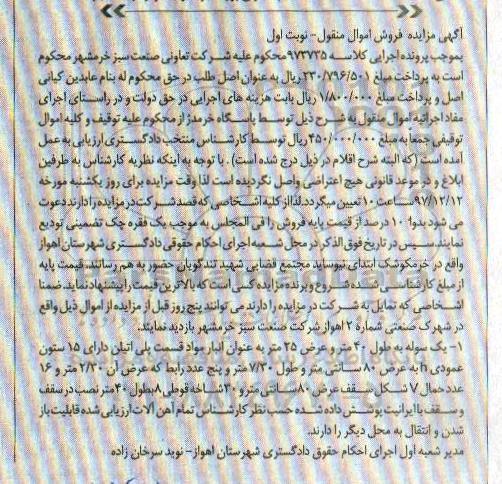 آگهی مزایده فروش اموال منقول - نوبت اول
بموجب پرونده اجرایی کلاسه ۹۷۳۷۳۵ محکوم علیه شرکت تعاونی صنعت سبز خرمشهر محکوم
است به پرداخت مبلغ ۲۳۰/۷۹۶/۵۰۱ ریال به عنوان اصل طلب در حق محکوم له بنام عابدین کیانی
اصل و پرداخت مبلغ ۱/۸۰۰/۰۰۰ ریال بابت هزینه های اجرایی در حق دولت و در راستای اجرای
مفاد اجرائیه اموال منقول به شرح ذیل توسط پاسگاه خرمدز از محکوم علیه توقیف و کلیه اموال
توقیفی جمعاً به مبلغ ۴۵۰/۰۰۰/۰۰۰ ریال توسط کارشناس منتخب دادگستری ارزیابی به عمل
آمده است (که البته شرح اقلام در ذیل درج شده است). با توجه به اینکه نظریه کارشناس به طرفین
ابلاغ و در موعد قانونی هیچ اعتراضی واصل نگردیده است لذا وقت مزایده برای روز یکشنبه مورخه
۹۷/۱۲/۱۲ ساعت ۱۰ تعیین میگردد. لذا از کلیه اشخاصی که قصد شرکت در مزایده را دارند دعوت
می شود بدوا ۱۰ درصد از قیمت پایه فروش را فی المجلس به موجب یک فقره چک تضمینی تودیع
نمایند. سپس در تاریخ فوق الذکر در محل شعبه اجرای احکام حقوقی دادگستری شهرستان اهواز
واقع در خرمکوشک ابتدای نیوساید مجتمع قضایی شهید تندگویان حضور به هم رسانند. قیمت پایه
از مبلغ کارشناسی شده شروع و برنده مزایده کسی است که بالاترین قیمت را پیشنهاد نماید. ضمنا
اشخاصی که تمایل به شرکت در مزایده را دارند می توانند پنج روز قبل از مزایده از اموال ذیل واقع
در شهرک صنعتی شماره ۲ اهواز شرکت صنعت سبز خرمشهر بازدید نمایند.
۱- یک سوله به طول ۴۰ متر و عرض ۲۵ متر به عنوان انبار مواد قسمت پلی اتیلن دارای ۱۵ ستون
عمودی h به عرض ۸۰ سانتی متر و طول ۷/۳۰ متر و پنج عدد رابط که عرض آن ۲/۳۰ متر و ۱۶
عدد حمال ۷ شکل سقف عرض ۸۰ سانتی متر و ۳۰ شاخه قوطی ۸ بطول ۴۰ متر نصب در سقف
و سقف با ایرانیت پوشش داده شده حسب نظر کارشناس تمام آهن آلات ارزیابی شده قابلیت باز
شدن و انتقال به محل دیگر را دارند.
مدیر شعبه اول اجرای احکام حقوق دادگستری شهرستان اهواز - نوید سرخان زاده